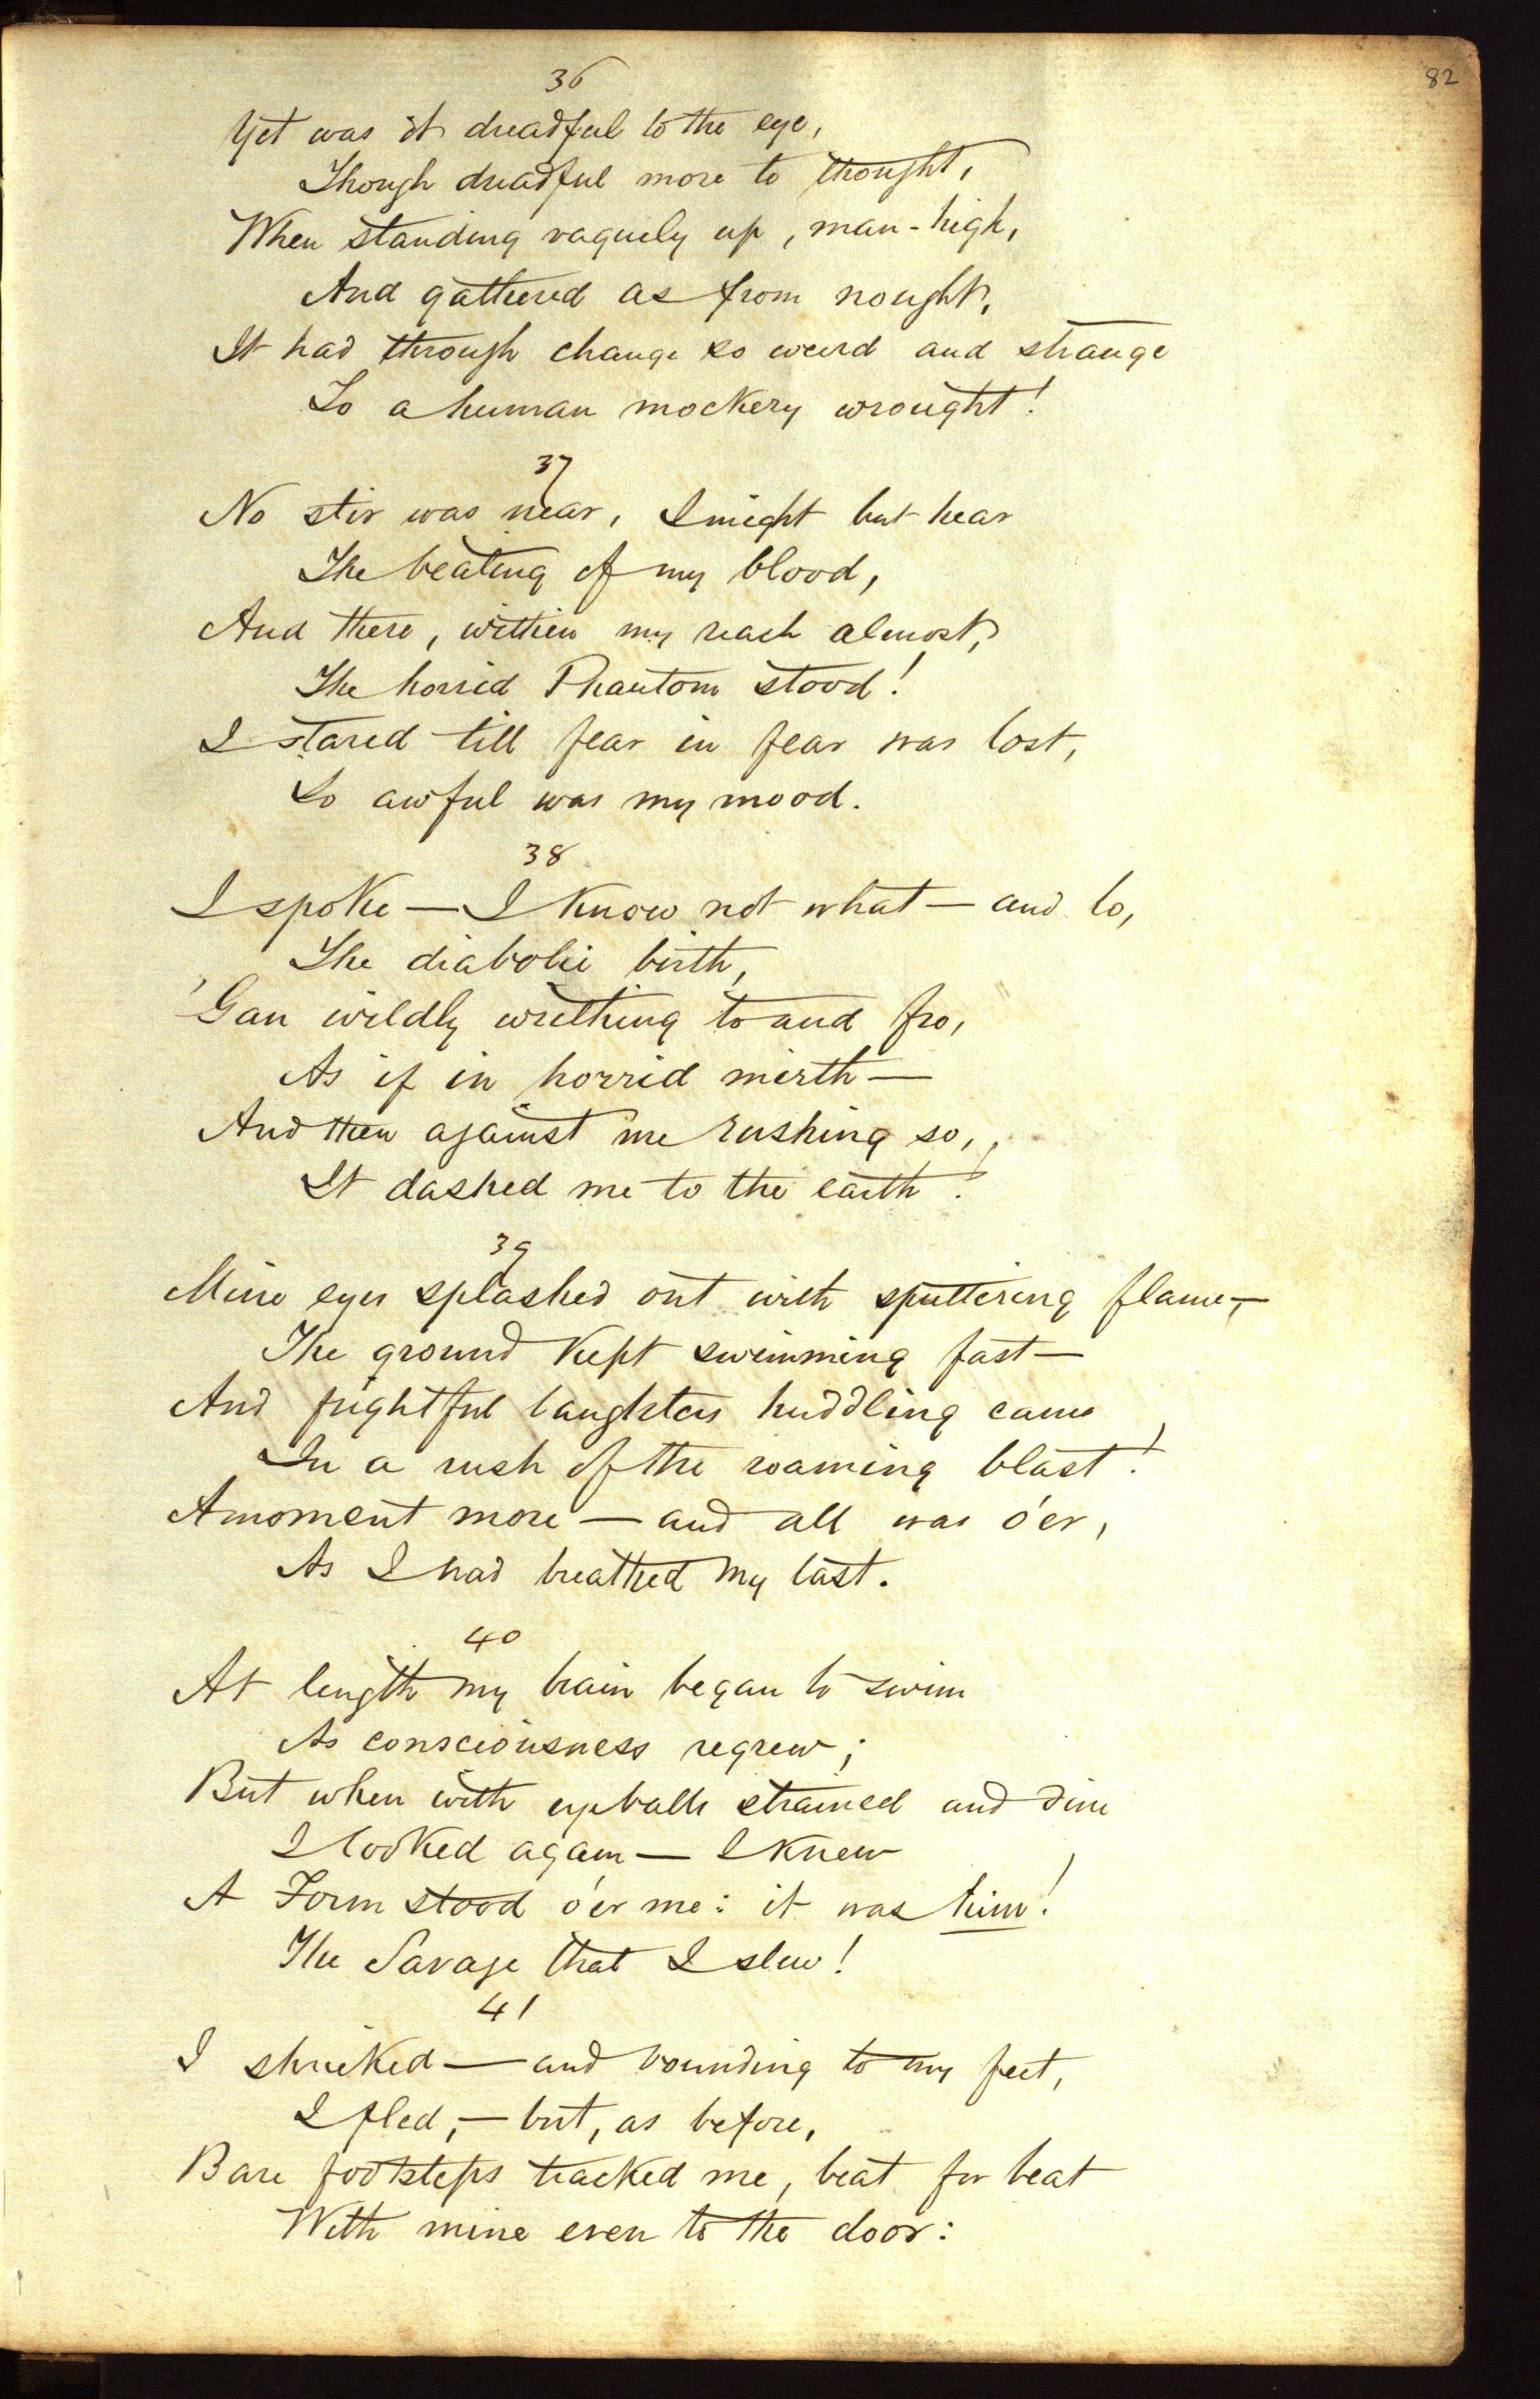 82
36
Yet was it dreadful to the eye,
Though dreadful more to thought,
When standing vaguely up, man-high,
And gathered as from nought,
It had through change so weird and strange
To a human mockery wrought!
37
No stir was near, I might but hear
The beating of my blood,
And there, within my reach almost,
The horrid Phantom stood!
I stared till fear in fear was lost,
So awful was my mood.
38
I spoke — I know not what — and lo,
The diabolic birth,
'Gan wildly writhing to and fro,
As if in horrid mirth —
And then against me rushing so,
It dashed me to the earth!
39
Mine eyes splashed out with sputtering flame, —
The ground kept swimming fast —
And frightful laughters huddling came
In a rush of the roaming blast!
A moment more — and all was o'er,
As I had breathed my last.
40
At length my brain began to swim
As consciousness regrew;
But when with eyeballs strained and dim
I looked again — I knew
A Form stood o'er me: it was him!
The Savage that I slew!
41
I shrieked — and bounding to my feet,
I fled, — but, as before,
Bare footsteps tracked me, beat for beat
With mine even to the door: